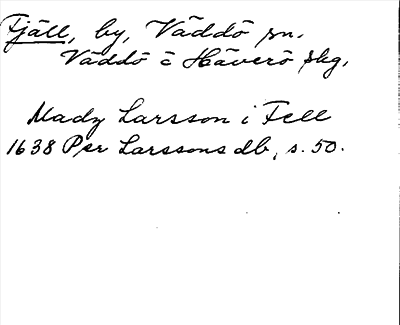 Fjäll, by, Väddö sn.
Väddö o Häverö skg.
Mady Larsson i Fell
1638 Per Larssons db, s. 50.